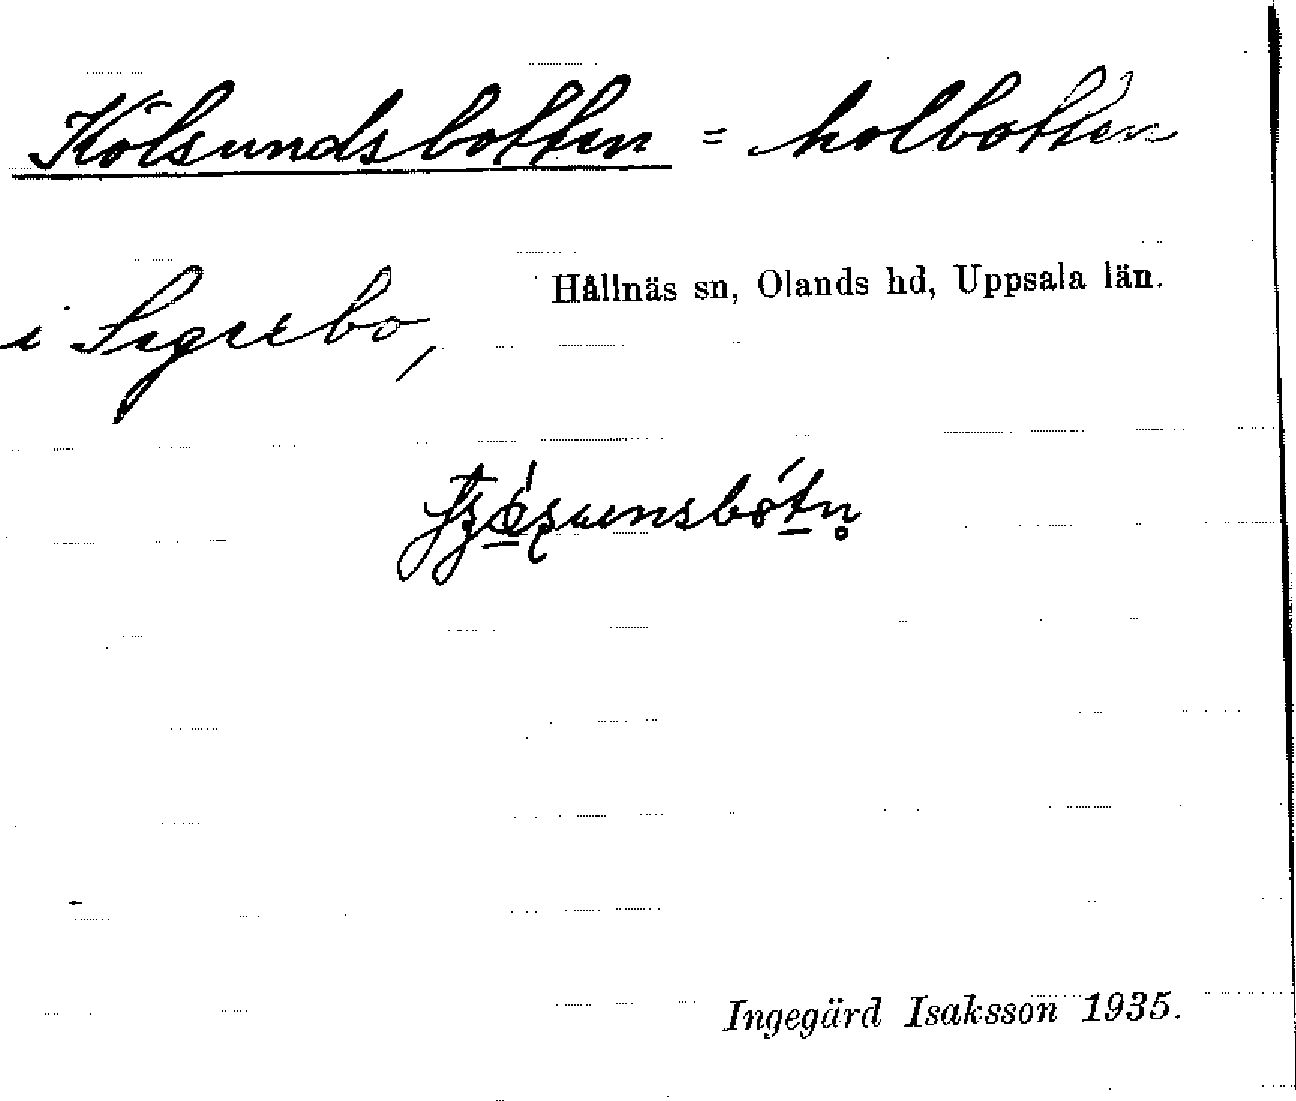 Kölsundsbotten = kolbotten
i Sigrebo,
Hållnäs sn, Olands hd, Uppsala län.
Ingegärd Isaksson 1935.